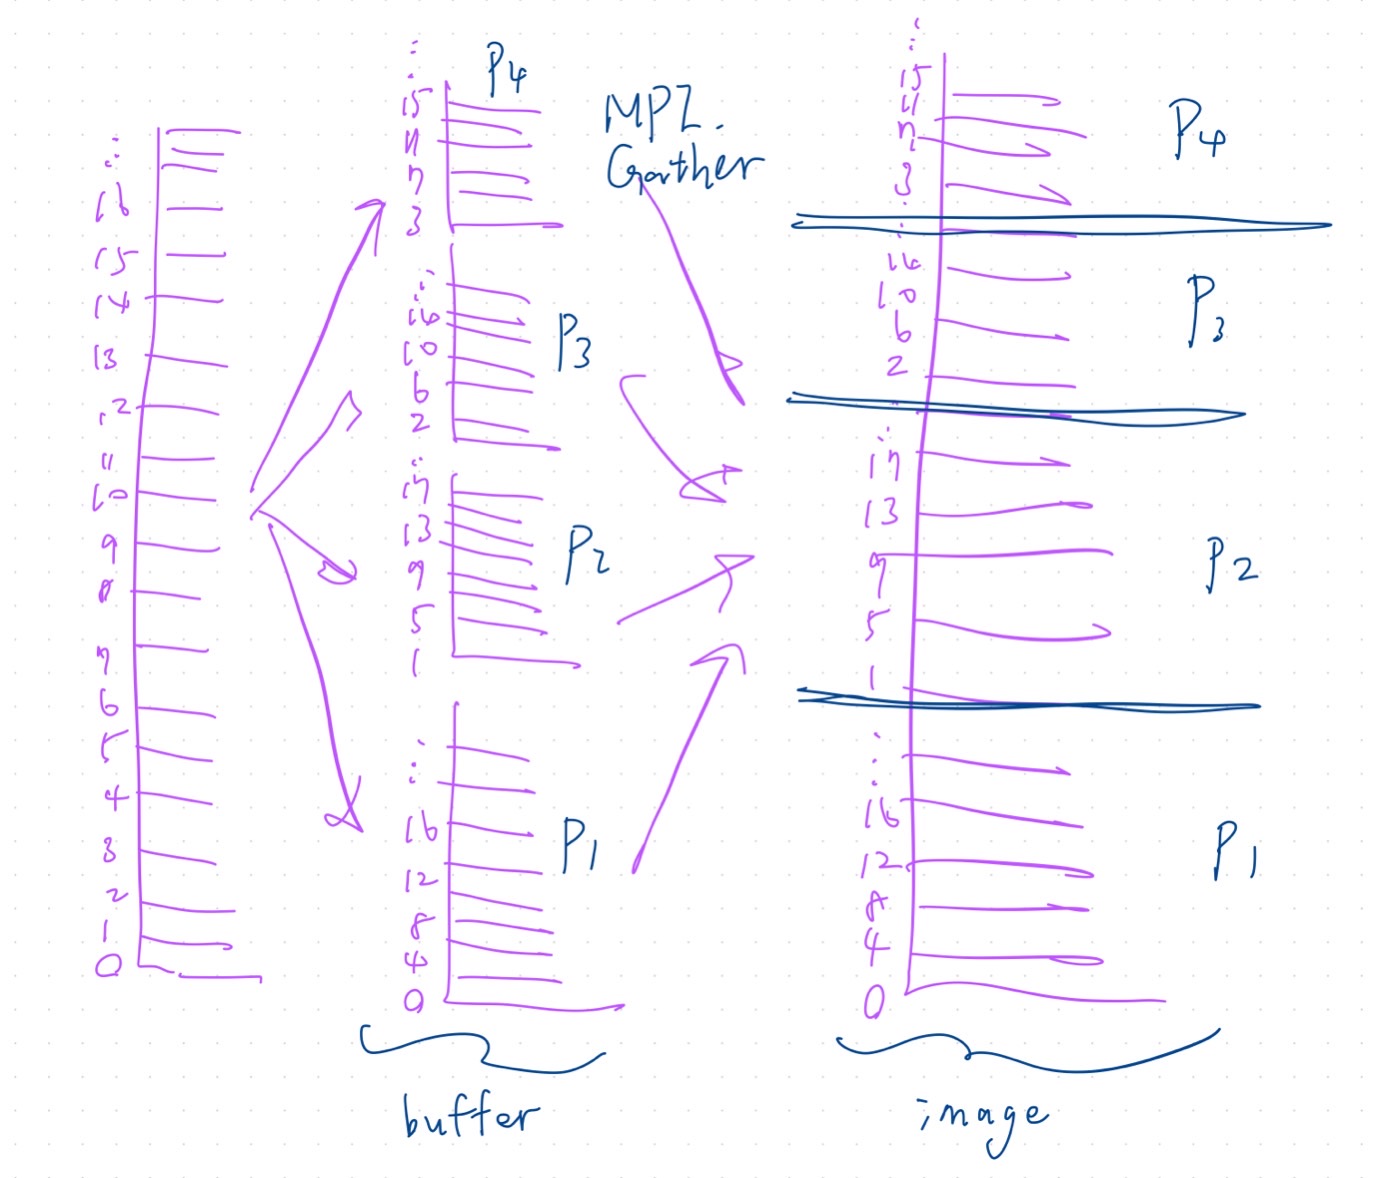 16
15
14
13
12
11
10
9
8
7
6
5
4
3
2
1
0
P4
15
11
7
3
P3
10
6
2
P2
17
13
9
5
1
P1
16
12
8
4
0
buffer
MPI.
Gather
15
11
7
3
P4
14
10
6
2
P3
17
13
9
5
1
P2
16
12
8
4
0
P1
image